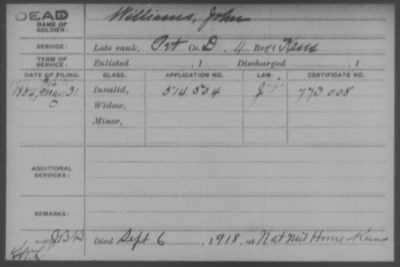 DEAD
NAME OF SOLDIER: Williams, John
SERVICE: Late rank, Pvt Co. D, 11 Reg't Kans
TERM OF SERVICE: Enlisted , 1 Discharged , 1
DATE OF FILING. CLASS. APPLICATION NO. LAW. CERTIFICATE NO.
1884, Mar 31 Invalid, 514.504 773.008
Widow,
Minor,
ADDITIONAL SERVICES:
REMARKS:
Died Sept 6, 1918, at Nat Mil Home Kans